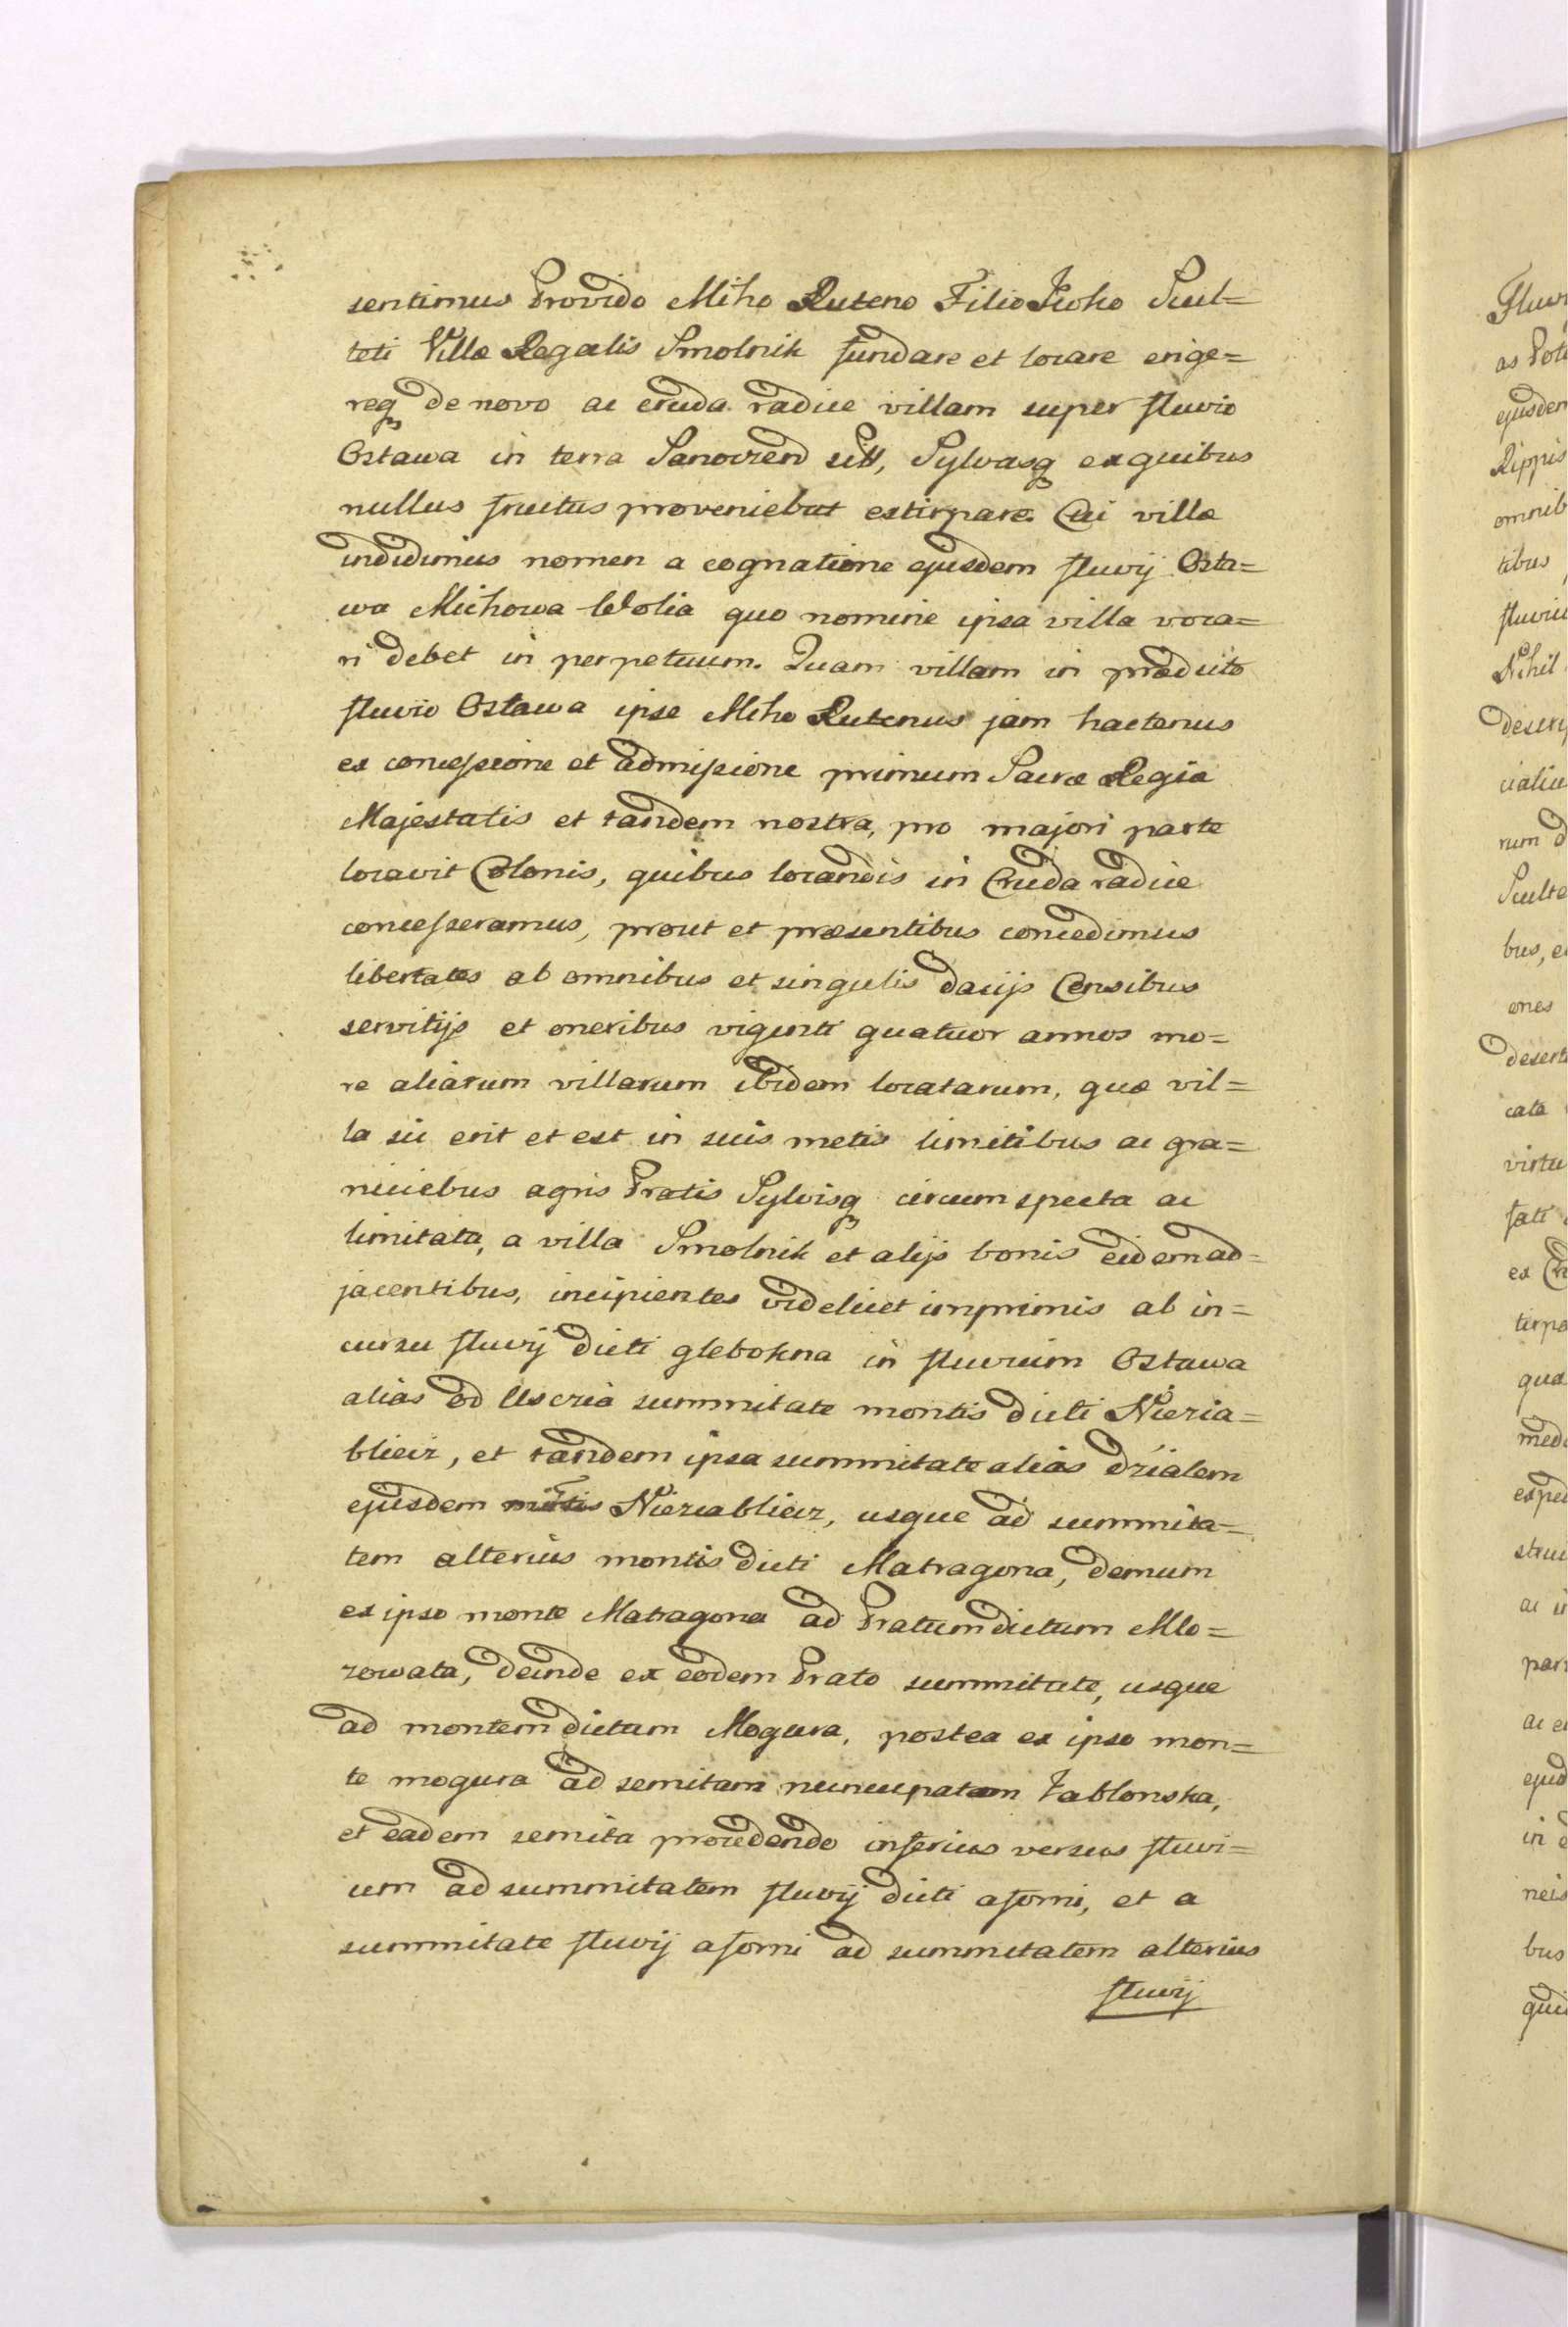 sentimus Provido Miho Ruteno Filio Iwoho Scul=
teti Villæ Regalis Smolnik fundare et locare erige=
reqꝫ de novo ac cruda radice villam super fluvio
Ostawa in terra Sanocien̄ sitt, Sylvasqꝫ ex quibus
nullus fructus proveniebat extirpare. Cui villæ
indidimus nomen a cognatione ejusdem fluvij Osta=
wa Michowa Wolia quo nomine ipsa villa voca=
ri debet in perpetuum. Quam villam in prædicto
fluvio Ostawa ipse Miho Rutenus jam hactenus
ex concessione et admissione primum Sacræ Regiæ
Majestatis et tandem nostra, pro majori parte
locavit Colonis, quibus locandis in Cruda radice
concesseramus, prout et præsentibus concedimus
libertates ab omnibus et singulis dacijs Censibus
servitijs et oneribus viginti quatuor annos mo=
re aliarum villarum ibidem locatarum, quæ vil=
la sic erit et est in suis metis limitibus ac gra=
niciebus agris Pratis Sylvisqꝫ circumspecta ac
limitata, a villa Smolnik et alijs bonis eidem ad=
jacentibus, incipientes videlicet imprimis ab in=
cursu fluvij dicti glebokna in fluvium Ostawa
alias od Uscria summitate montis dicti Nieria=
blicir, et tandem ipsa summitate alias działem
ejusdem mōtis Nieriablicir, usque ad summita=
tem alterius montis dicti Matragona, demum
ex ipso monte Matragona ad Pratum dictum Mlo=
zowata, deinde ex eodem Prato summitate, usque
ad montem dictum Mogura, postea ex ipso mon=
te mogura ad semitam nuncupatam Jablonska,
et eadem semita procedendo inferius versus fluvi=
um ad summitatem fluvij dicti asorni, et a
summitate fluvij asorni ad summitatem alterius
fluvij
Fluvi
as Poto
ejusdem
Rippis
omnib
tibus
fluviu
Nihil
descrip
rum d
Sculte
bus, e
ones
deserti
cata
virtu
ex Cr
tirpa
qua
expe
struc
ac i
par
ac e
in d
neis
bus